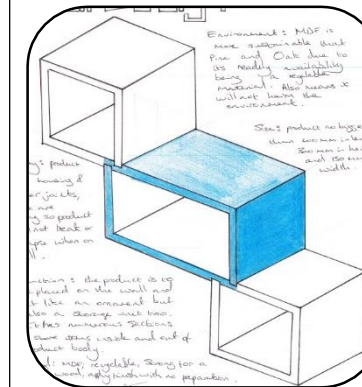 Environment: MDF is
more sustainable than
Pine and Oak due to
its readily availability
being a recyclable
material. Also means it
will not harm the
environment.
Size: product no bigger
than 600 mm in
300 mm in
and 150 mm
width.
product
housing &
jackets,
are
so product
not break or
when on
: the product is to
placed on the wall and
like an ornament but
also a storage unit too.
It has numerous sections
store items inside and out of
product body.
: MDF, recyclable, strong for a
wood, apply finish with no preparation